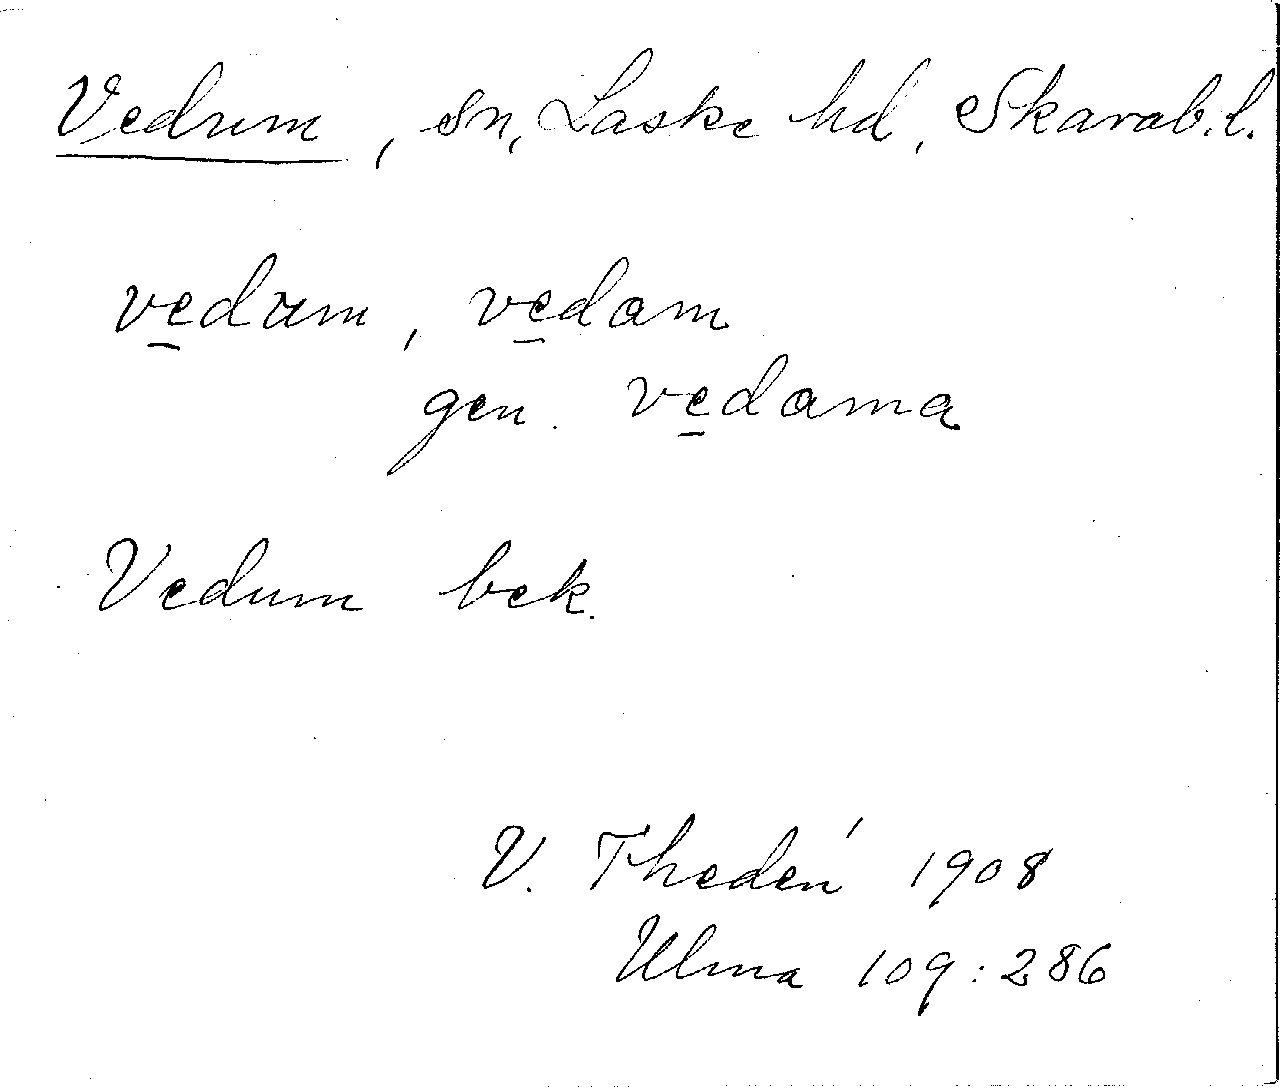 Vedum, sn, Laske hd, Skarab.l.
ve̠dum, ve̠dam
gen. ve̠dama
Vedum bek.
V. Thedén 1908
Ulma 109:286